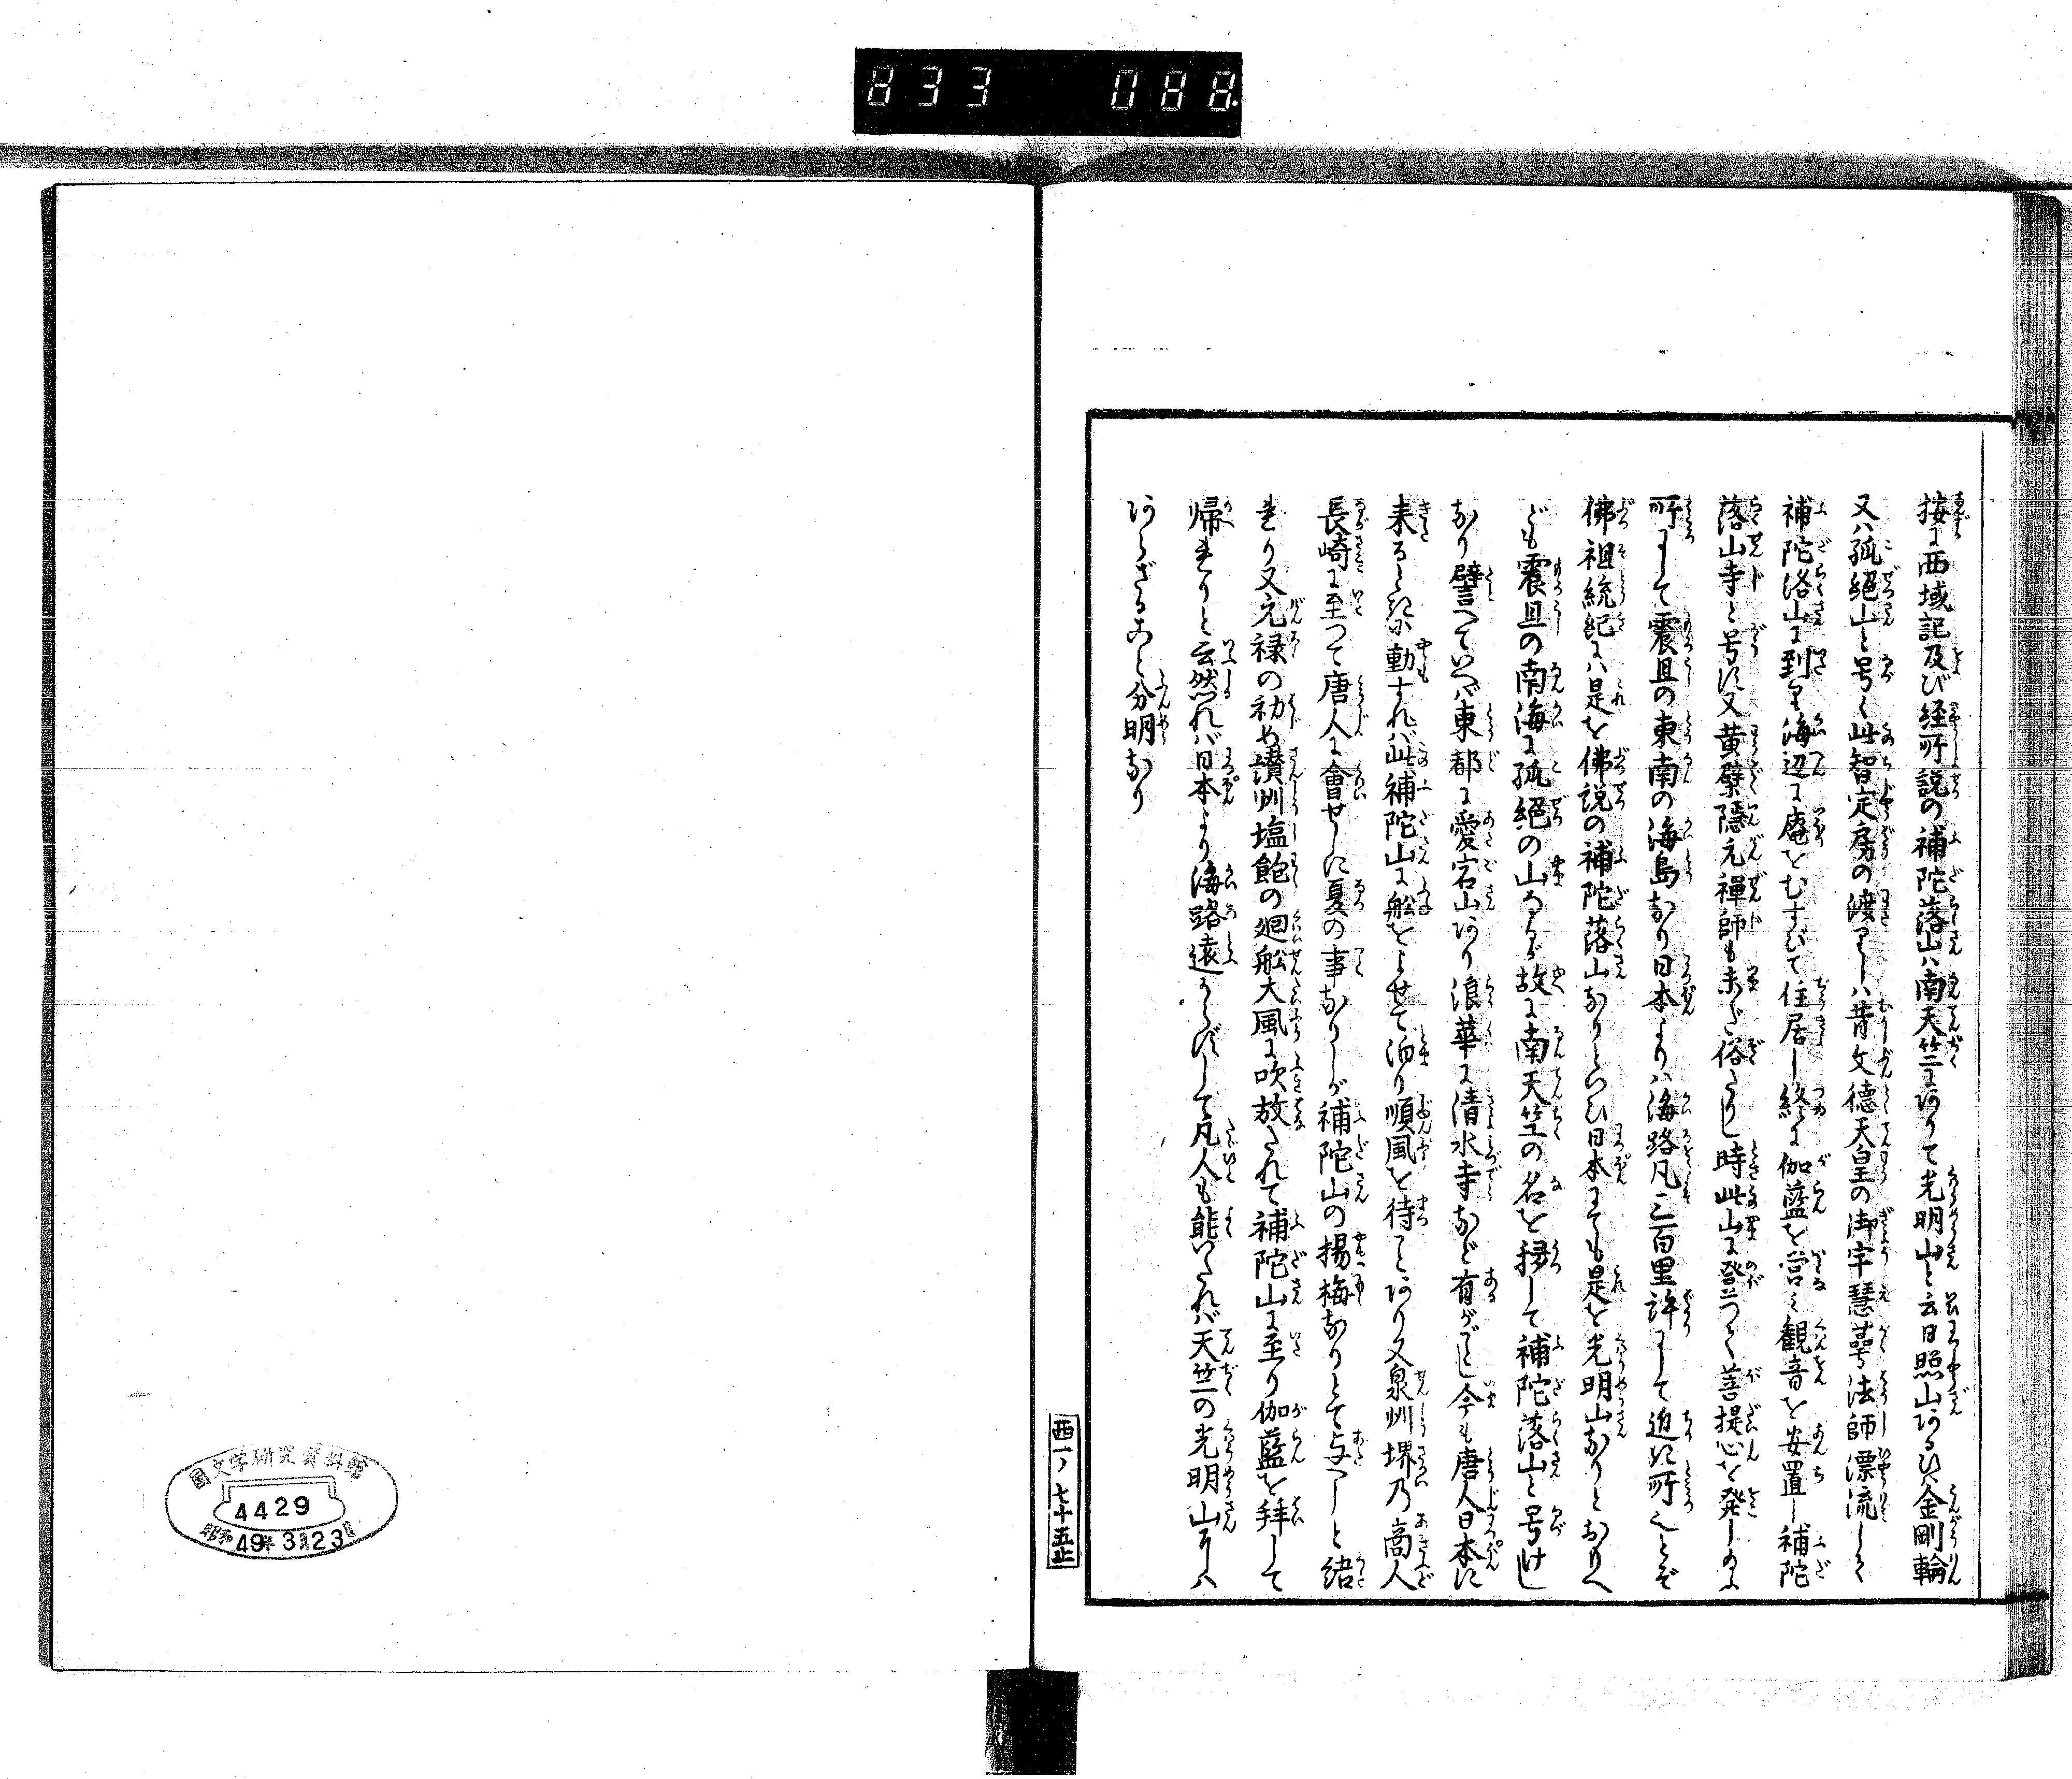 833 088
按に西域記及び経所説の補陀落山ハ南天竺にありて光明山と云日照山あるひハ金剛輪
又ハ孤絕山と号く此智定房の渡りしハ昔文德天皇の御宇慧萼法師漂流して
補陀洛山に到り海辺に庵をむすびて住居し終に伽藍を営ミ観音を安置し補陀
落山寺と号に又黄檗隠元禅師も未だ俗たりし時此山に登つて菩提心を発しのふ
所にして震旦の東南の海島なり日本よりハ海路凡三百里許にして近き所とぞ
佛祖統紀にハ是を佛説の補陀落山なりといひ日本にても是を光明山なりとおもへ
ども震旦の南海に孤絕の山なるが故に南天竺の名を移して補陀落山と号けし
なり譬へていへバ東都に愛宕山あり浪華に清水寺など有がごとし今も唐人日本に
来るとき動すれバ此補陀山に船をよせて泊り順風を待ことあり又泉州堺乃商人
長崎に至つて唐人に會せしに夏の事なりしが補陀山の楊梅なりとて与へしと緒
れり又元禄の初め讃州塩飽の廻船大風に吹放たれて補陀山に至り伽藍を拝して
帰れりと云然れバ日本より海路遠からずして凡人も能いたれバ天竺の光明山にハ
あらざること分明なり
西一ノ七十五止
國文学研究資料館
4429
昭和49年3月23日